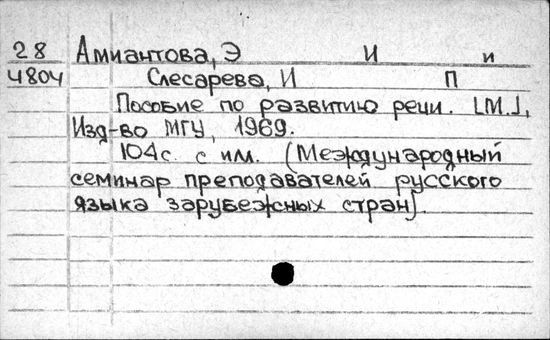 28 Амиантова, Э И и
4804 Слесарева, И П
Пособие по развитию речи. [М.],
Изд-во МГУ, 1969.
104с. с илл. (Международный
семинар преподавателей русского
языка зарубежных стран).